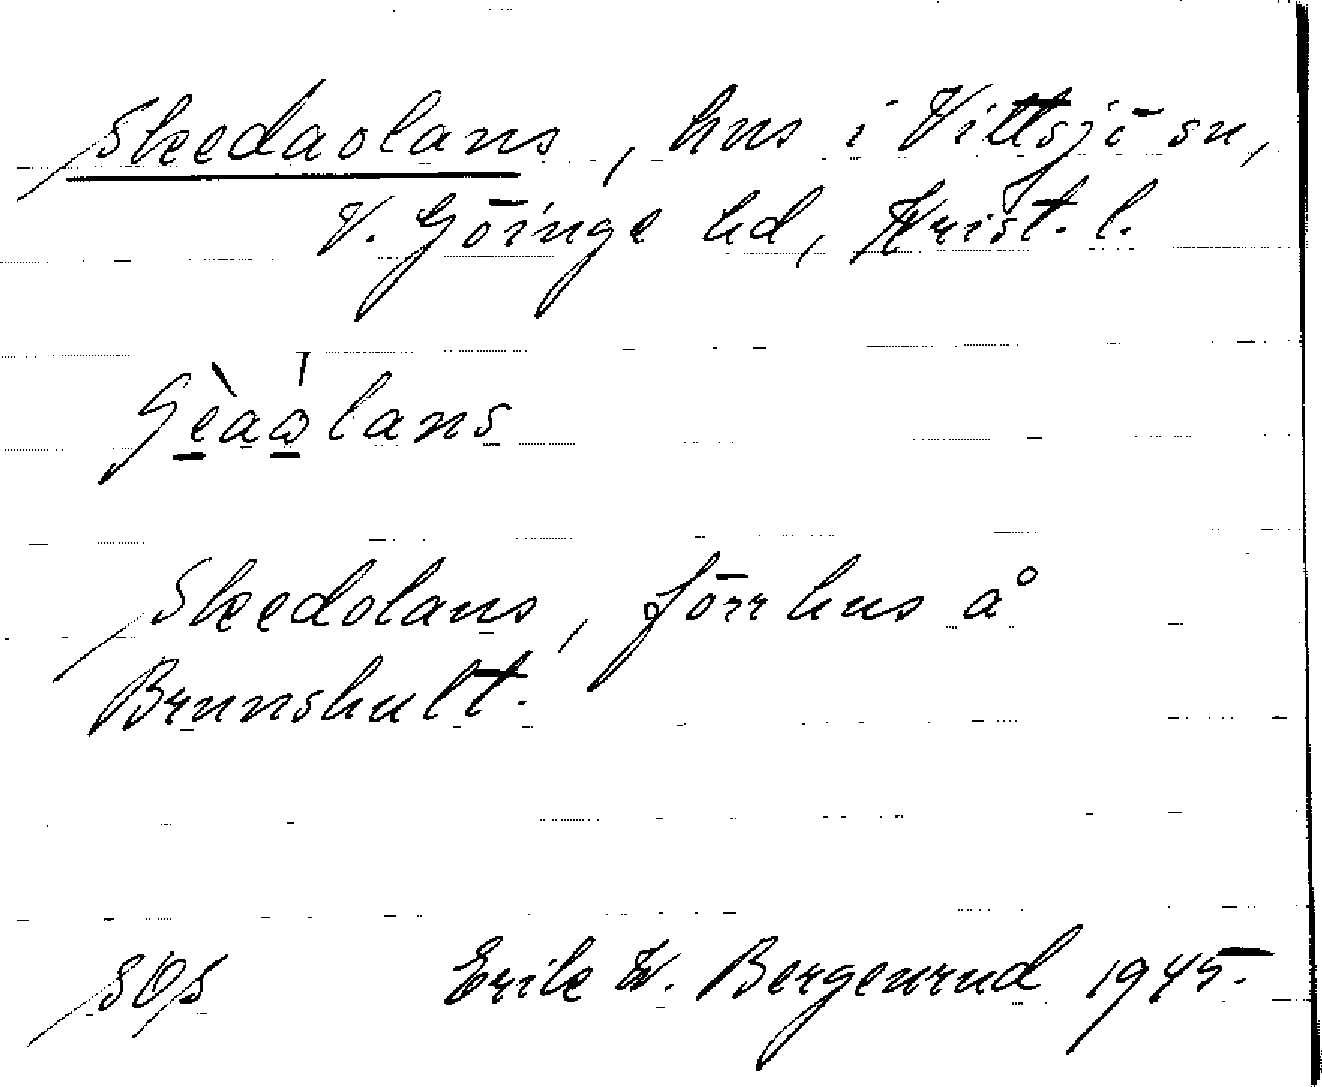 Skedaolans, hus i Vittsjö sn,
V. Göinge hd, Krist. l.
Skedolans, förr hus å
Brunshult.
SOS Erik W. Bergenrud 1945.